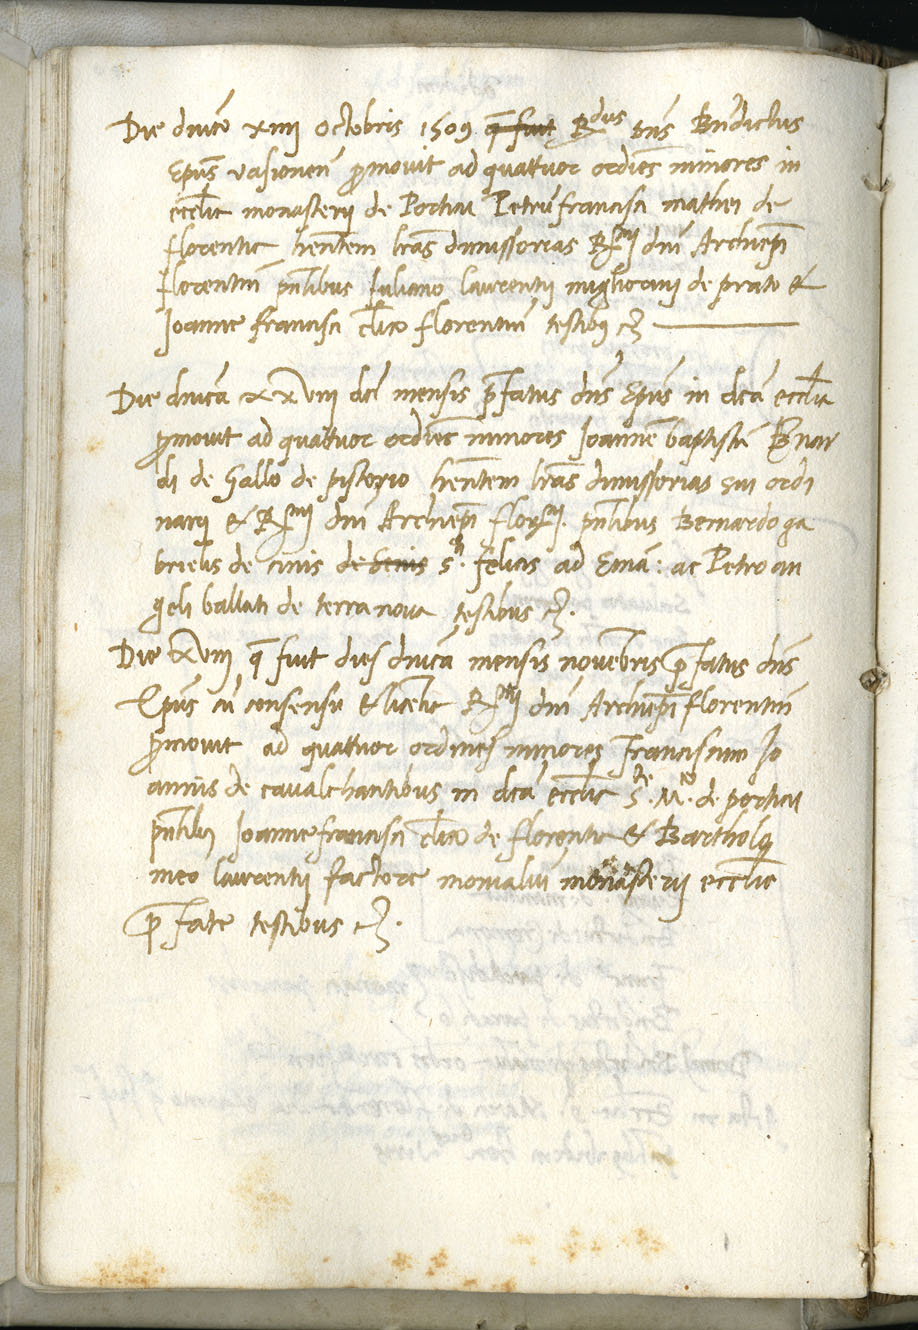 Die dnica xiiij octobris 1509. q̄ fuit Rdus dns Bndictus
Epus vasionen promovit ad quattuor ordies minores in
ecclia monasterij de Porticu Petrufrancisci mathei de
florentia hentem lras dimissorias Rmi dni Archiepi
florentini pntibus Iuliano laurentij migliorati de prato &
Ioanne francisci clico florentin testibus &c
Die dnica xxviij dcl mensis prefatus dns Epus in dca ecclia
promovit ad quattuor ordies minores Ioanne baptista Bnar
di de Gallo de pistorio hentem lras dimissorias sui ordi
narij & Rmi dni Archiepi flor. pntibus Bernardo ga
brielis de cinis de Senis S. felicis ad Ema: ac Petro an
geli ballati de terra nova testibus &c.
Die xviij q̄ fuit dies dnica mensis novebris prefatus dns
Epus cu consensu & licetia Rmi dni Archiepi florentini
promovit ad quattuor ordines minores Franciscum Io
annis de cavalchantibus in dca ecclia Ste. Me. de porticu
pntibus Ioannefrancisci clico de florentia & Bartholo
meo laurentij factore monialiu monasterij ecclie
prefate testibus &c.